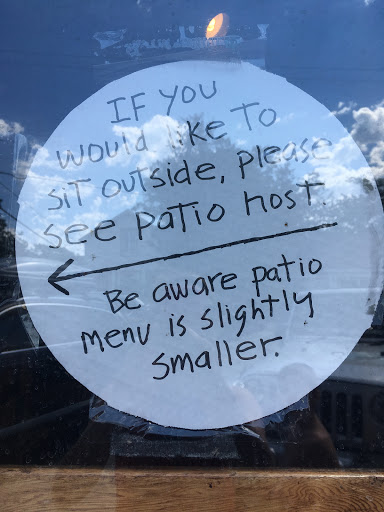 IF you
would like to
sit outside, please
see patio host.
Be aware patio
menu is slightly
smaller.